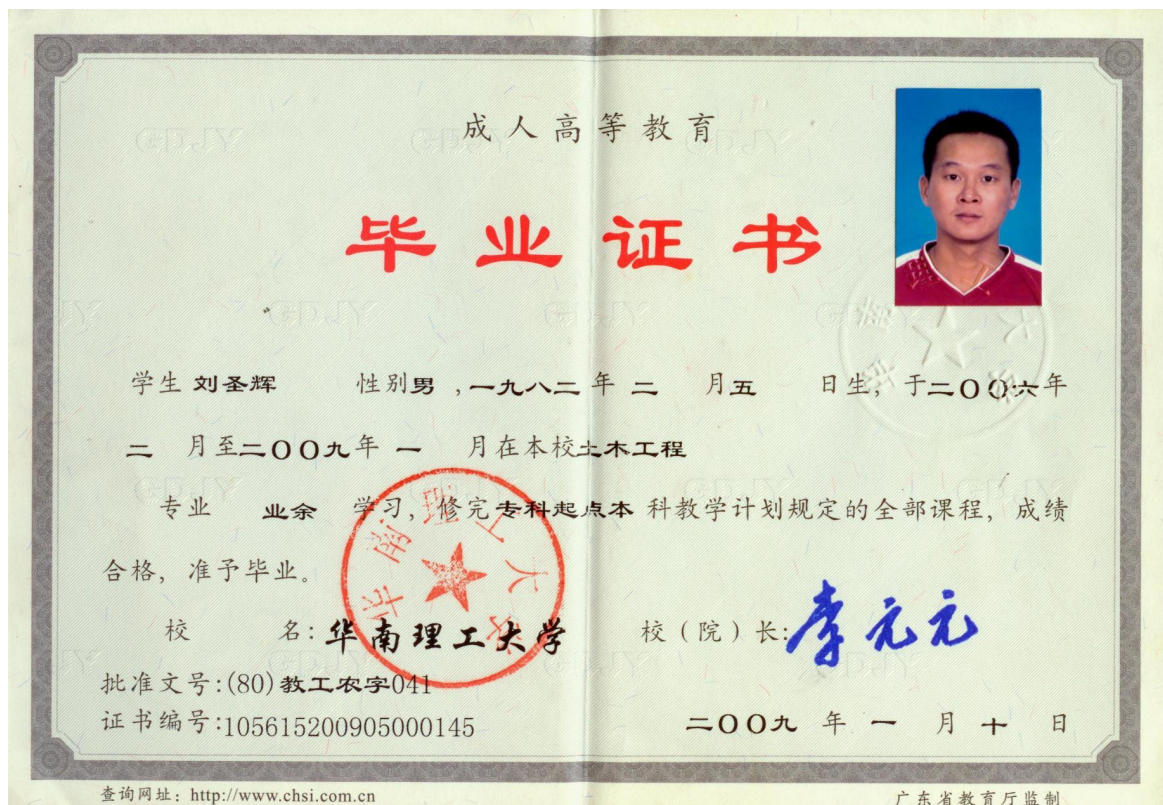 成人高等教育
毕业证书
学生 刘圣辉 性别男，一九八二年 二 月五 日生，于二〇〇六年
二 月至二〇〇九年 一 月在本校土木工程
专业 业余 学习，修完专科起点本科教学计划规定的全部课程，成绩
合格，准予毕业。
华南理工大学
校 名：华南理工大学 校（院）长：李元元
批准文号：(80)教工农字041
证书编号：105615200905000145 二〇〇九 年 一 月 十 日
查询网址：http://www.chsi.com.cn 广东省教育厅监制